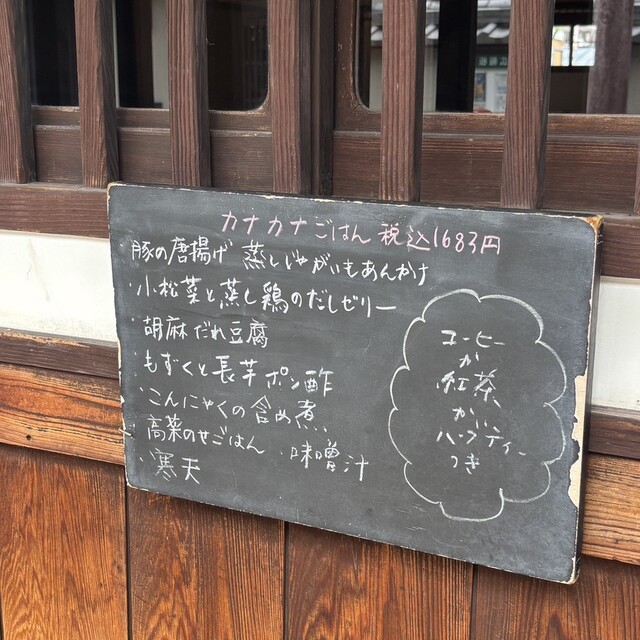 カナカナごはん 税込1683円
豚の唐揚げ 蒸しじゃがいもあんかけ
・小松菜と蒸し鶏のだしゼリー
・胡麻だれ豆腐
・もずくと長芋ポン酢
・こんにゃくの含め煮
・高菜のせごはん ・味噌汁
・寒天
コーヒー
か
紅茶
か
ハーブティー
つき